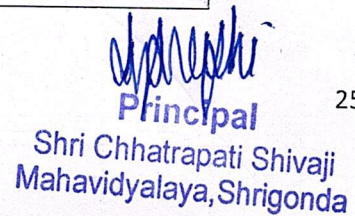 Principal
25
Shri Chhatrapati Shivaji
Mahavidyalaya, Shrigonda